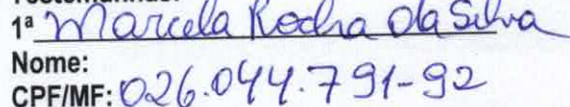 1ª Marcela Rocha da Silva
Nome:
CPF/MF: 026.044.791-92